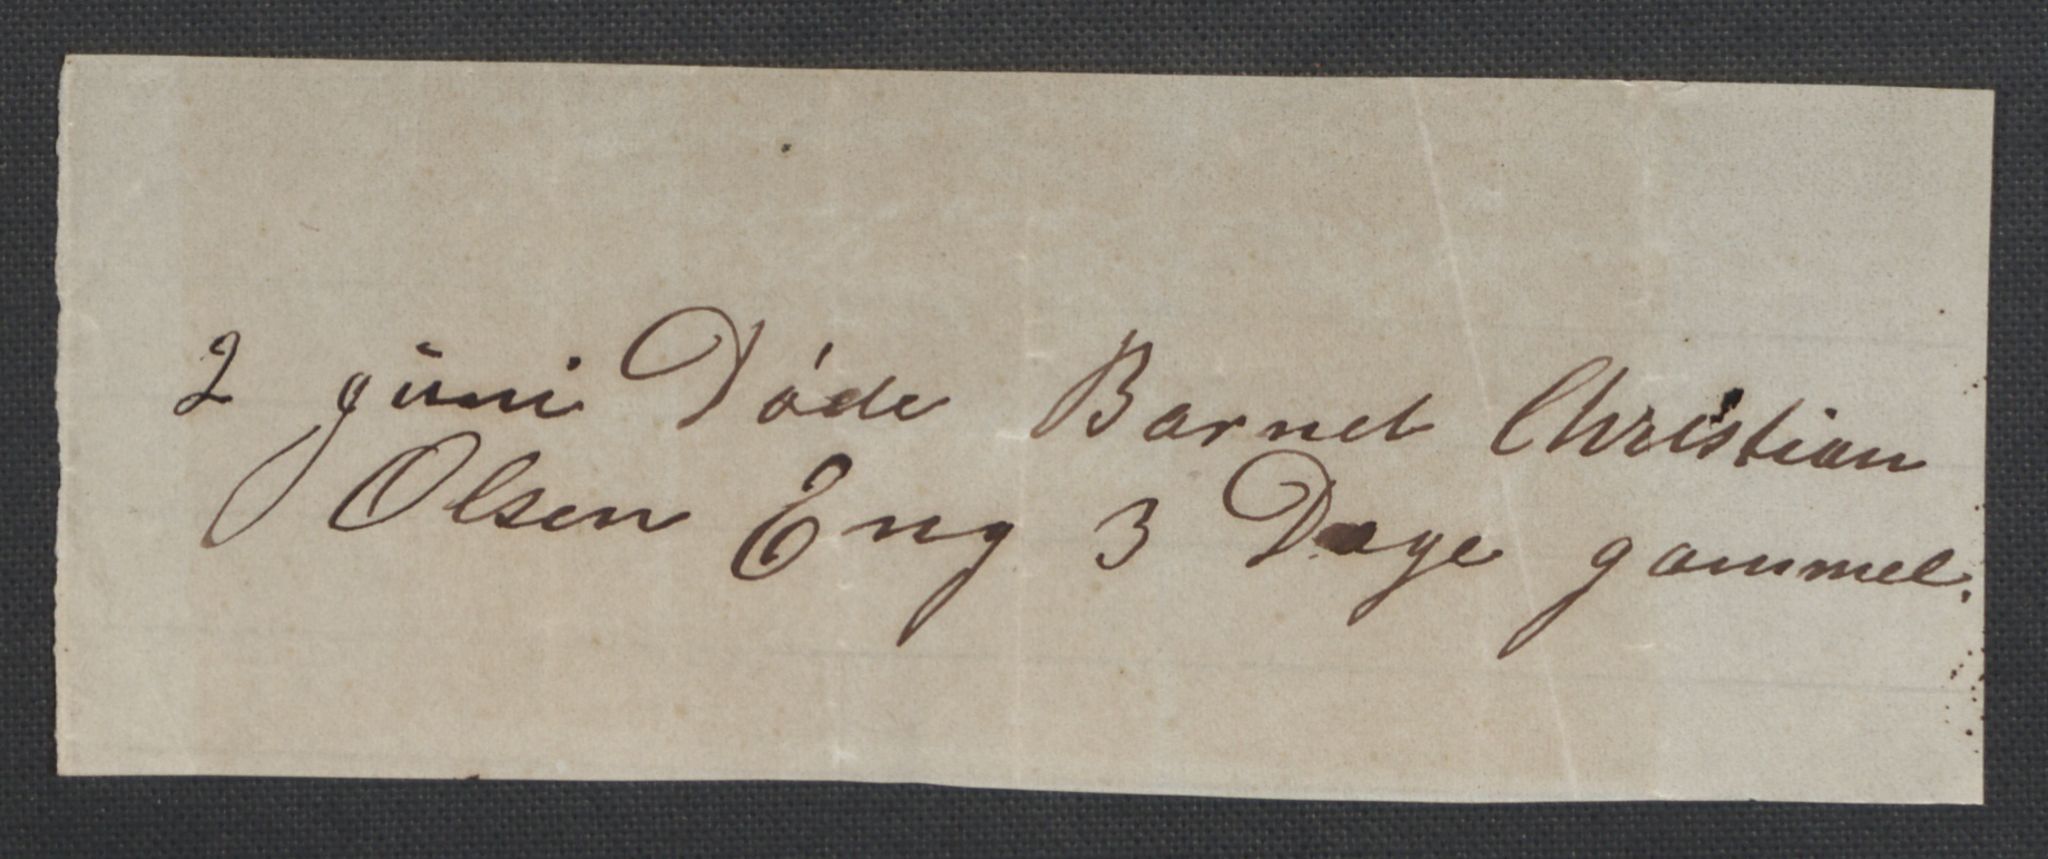 2 juni Døde Barnet Christian
Olsen Eng 3 Dage gammel.